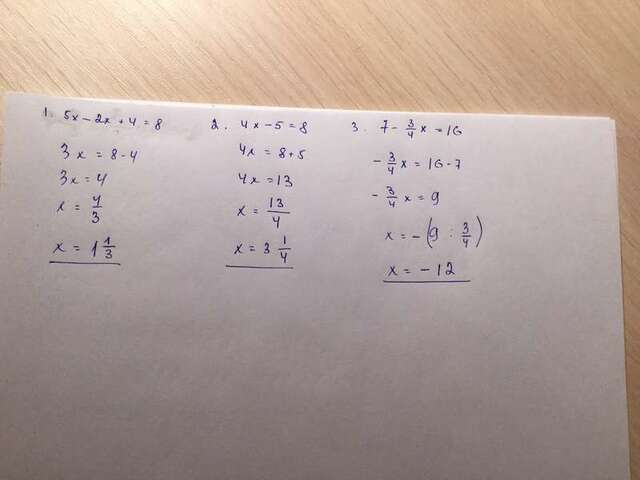 1. 5x - 2x + 4 = 8
3x = 8 - 4
3x = 4
x = 4/3
x = 1 1/3
2. 4x - 5 = 8
4x = 8 + 5
4x = 13
x = 13/4
x = 3 1/4
3. 7 - 3/4 x = 16
- 3/4 x = 16 - 7
- 3/4 x = 9
x = - (9 : 3/4)
x = - 12